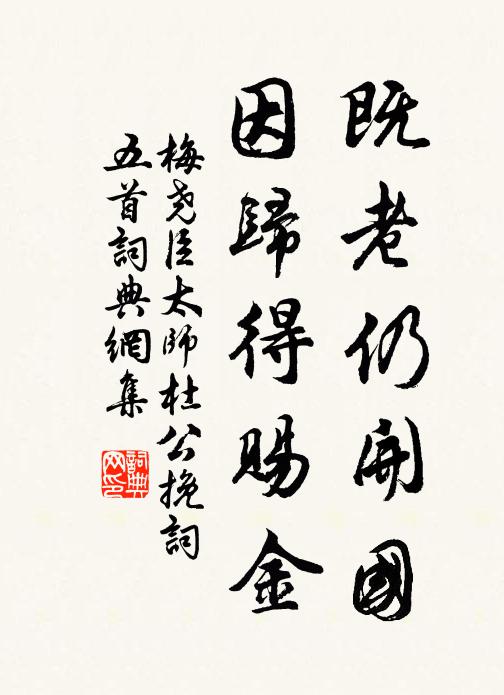 既老仍開國
因歸得賜金
梅堯臣太師杜公挽詞
五首詞典網集
詞典
网印